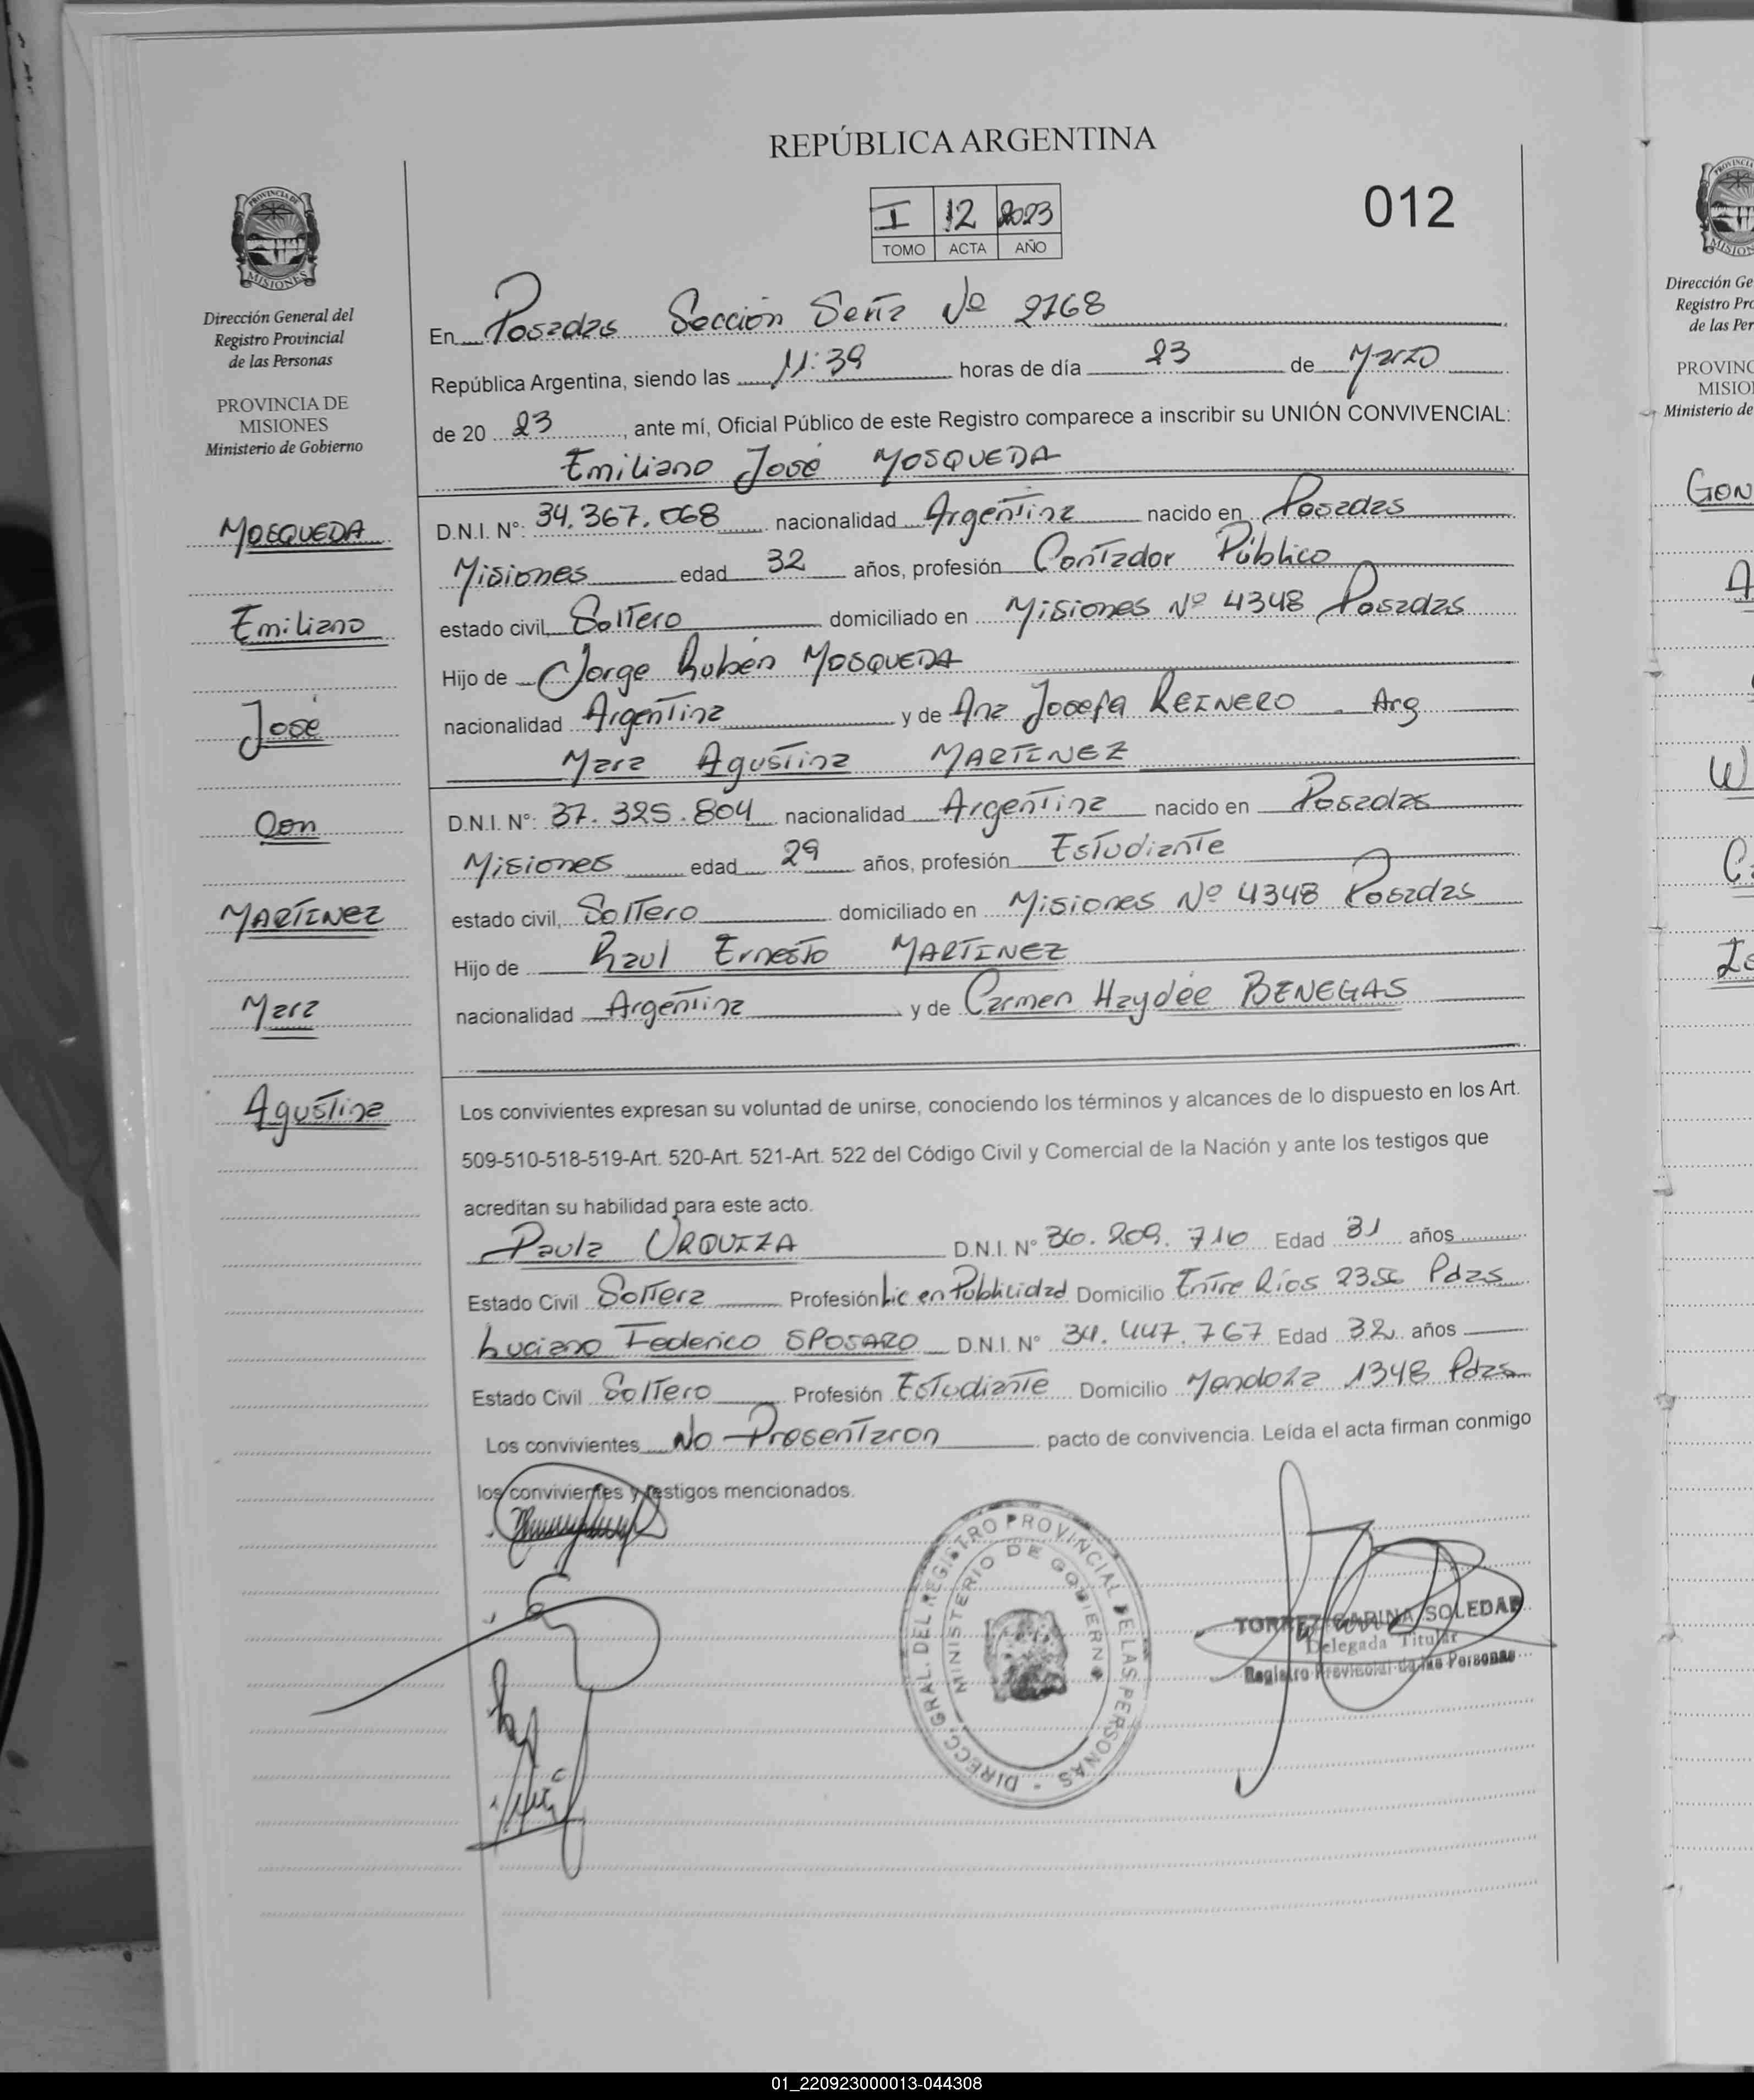 REPÚBLICA ARGENTINA
012
I 12 2023
TOMO ACTA AÑO
PROVINCIA DE
MISIONES
Dirección General del
Registro Provincial
de las Personas
PROVINCIA DE
MISIONES
Ministerio de Gobierno
MOSQUEDA
Emiliano
José
Con
MARTINEZ
Mara
Agustina
En Posadas Sección Sexta Nº 2768
República Argentina, siendo las 11:39 horas de día 23 de Marzo
de 20 23, ante mí, Oficial Público de este Registro comparece a inscribir su UNIÓN CONVIVENCIAL:
Emiliano José MOSQUEDA
D.N.I. Nº: 34.367.068 nacionalidad Argentina nacido en Posadas
Misiones edad 32 años, profesión Contador Público
estado civil, Soltero domiciliado en Misiones Nº 4348 Posadas
Hijo de Jorge Rubén MOSQUEDA
nacionalidad Argentina y de Ana Josefa REINERO . Arg
Mara Agustina MARTINEZ
D.N.I. Nº: 37.325.804 nacionalidad Argentina nacido en Posadas
Misiones edad 29 años, profesión Estudiante
estado civil, Soltero domiciliado en Misiones Nº 4348 Posadas
Hijo de Raul Ernesto MARTINEZ
nacionalidad Argentina y de Carmen Haydée BENEGAS
Los convivientes expresan su voluntad de unirse, conociendo los términos y alcances de lo dispuesto en los Art.
509-510-518-519-Art. 520-Art. 521-Art. 522 del Código Civil y Comercial de la Nación y ante los testigos que
acreditan su habilidad para este acto.
Paula URQUIZA D.N.I. Nº 36.209.710 Edad 31 años
Estado Civil Soltera Profesión Lic en Publicidad Domicilio Entre Ríos 2356 Pdas
Luciano Federico SPOSARO D.N.I. Nº 34.447.767 Edad 32 años
Estado Civil Soltero Profesión Estudiante Domicilio Mendoza 1348 Pdas
Los convivientes No Presentaron pacto de convivencia. Leída el acta firman conmigo
los convivientes y testigos mencionados.
DIRECC. GRAL. DEL REGISTRO PROVINCIAL DE LAS PERSONAS -
MINISTERIO DE GOBIERNO
TORREZ CARINA SOLEDAD
Delegada Titular
Registro Provincial de las Personas
Dirección Ge
Registro Pro
de las Per
PROVINC
MISIO
Ministerio de
GON
A
W
01_220923000013-044308